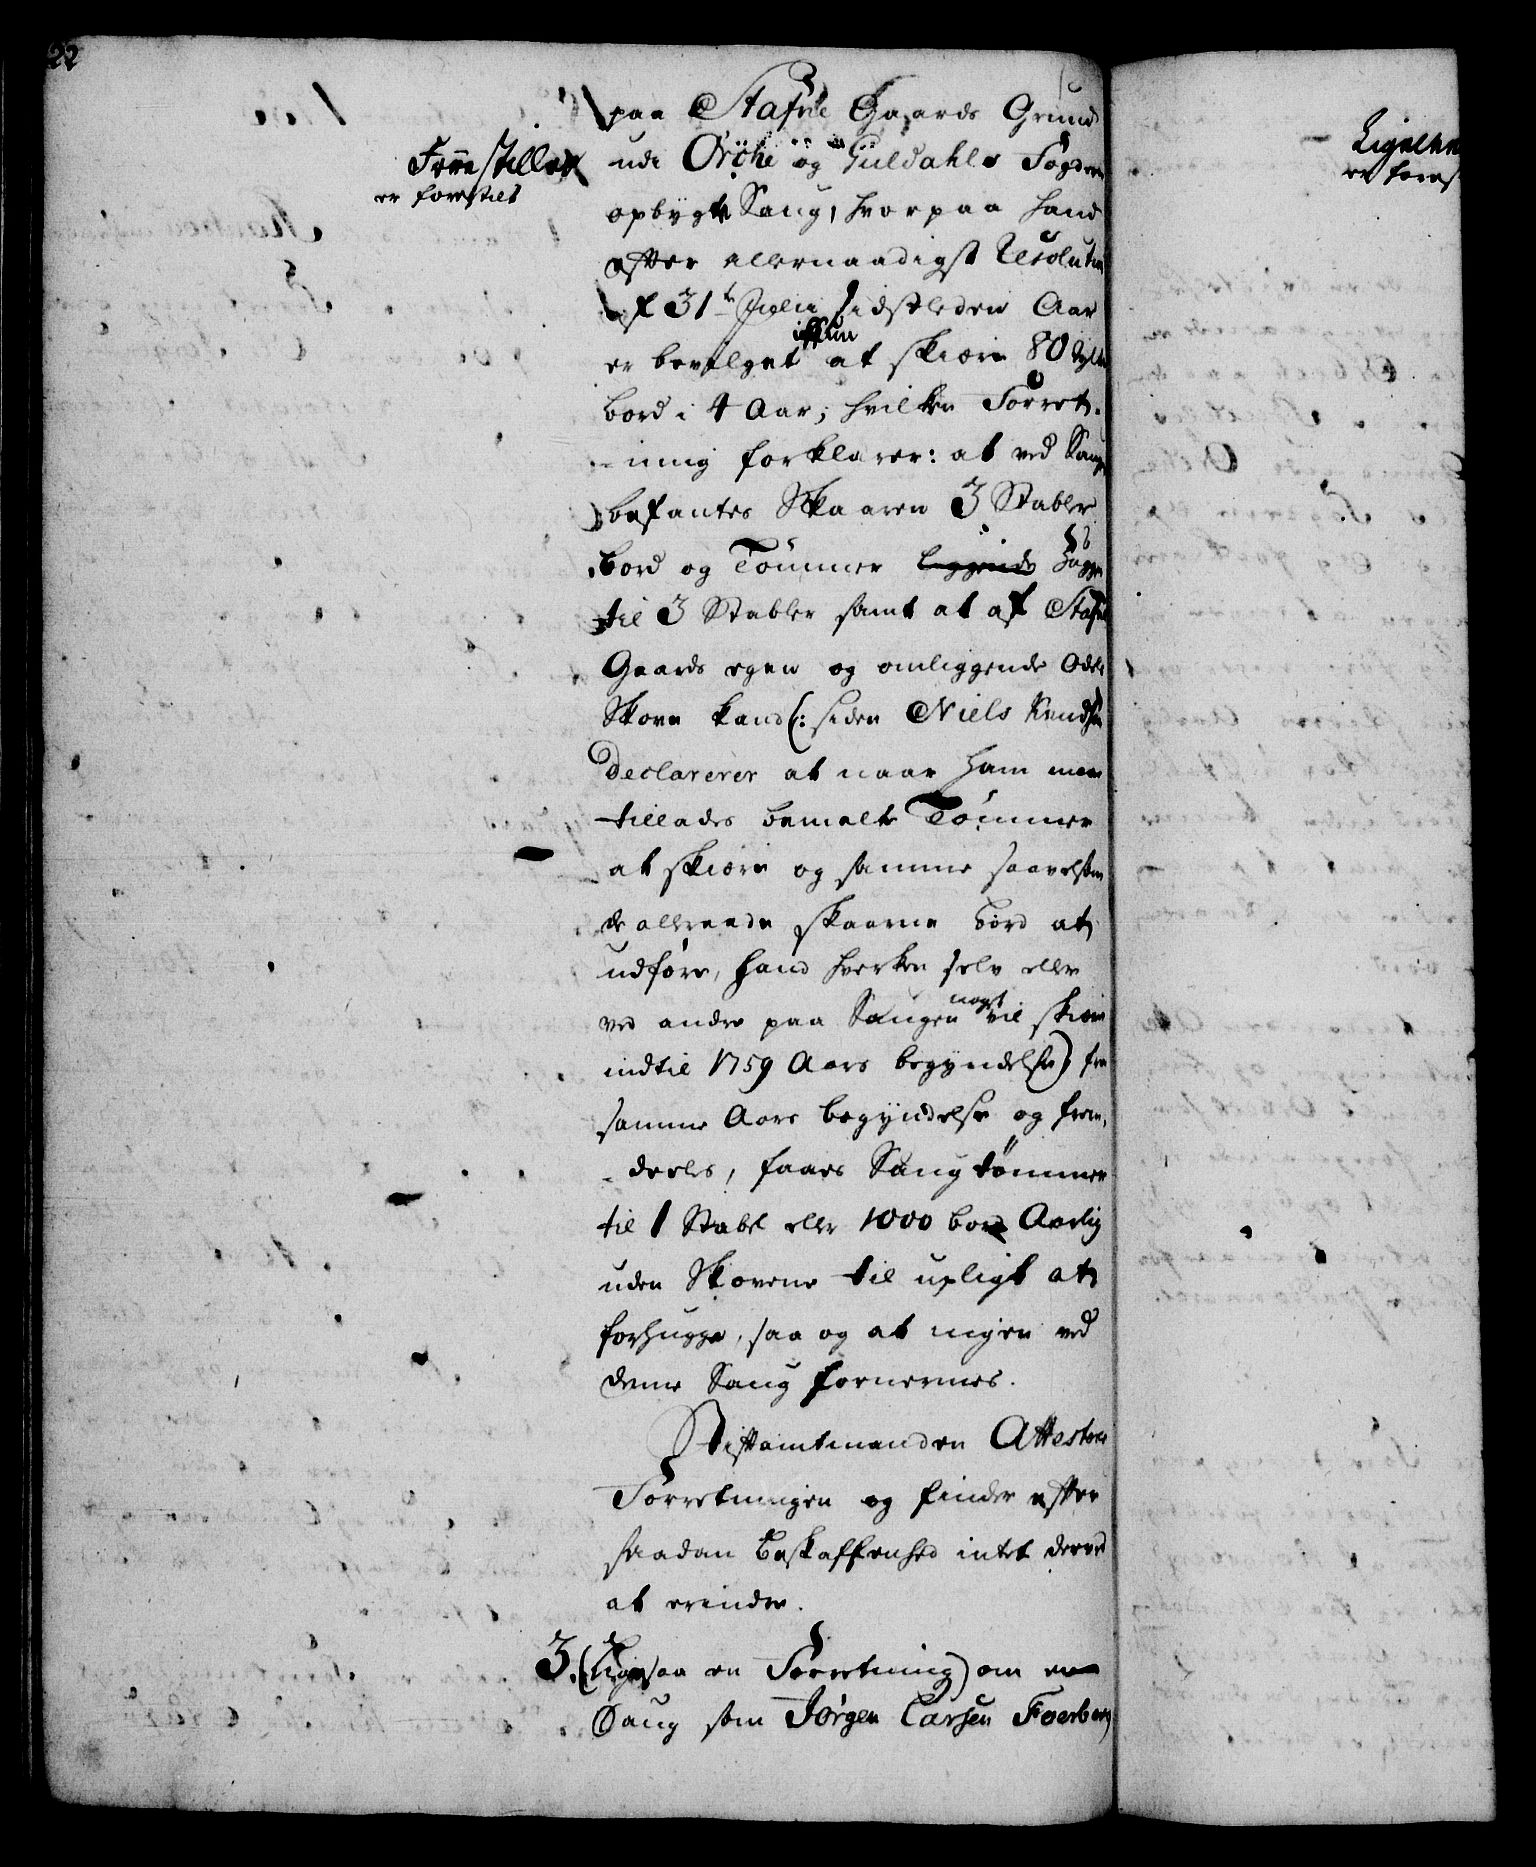 22
paa Stafne Gaards Grund
Forestilles
er forestilt
udi Orche og Guldahls Fogderie
opbygte Saug, hvorpaa hand
efter allernaadigst Resolution
af 31te Julii sidstleden Aar
ickun
er bevilget at skiære 80 Tylter
bord i 4 Aar; hvilken Forret-
-ning forklarer: at ved Saugen
befantes Skaaren 3 Stabler
bord og Tømmer liggende hugget
til 3 Stabler samt at af Stafne
Gaards egen og omliggende Odels
Skove kand (: siden Niels Knudsen
Declarerer at naar ham men
tillades bemelte Tømmer
at skiære og samme saavelsom
de allereede skaarne bord at
udføre, hand hverken selv eller
noget
ved andre paa Saugen vil skiære
indtil 1759 Aars begyndelse) fra
samme Aars begyndelse og frem-
-deeles, faaes Saugtømmer
til 1 Stabel eller 1000 bord Aarlig
uden Skovene til upligt at
forhugge, saa og at ingen ved
denne Saug fornermes.
Stiftamtmanden Attesterer
Forretningen og finder efter
saadan beskaffenhed intet derved
at erindre.
3. (Ligesaa en Forretning) om en
Saug som Jørgen Larsen Foerberg
Ligeledes
er forest